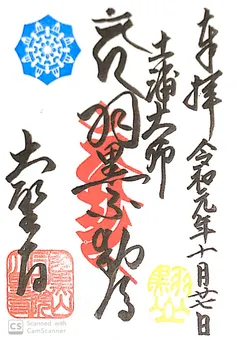 奉拝 令和元年十月廿日
土浦大師
羽黒不動尊
大聖寺
CS Scanned with CamScanner